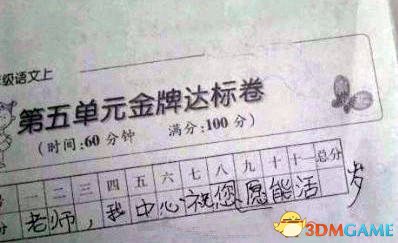 级语文上
第五单元金牌达标卷
(时间:60 分钟 满分:100 分)
一 二 三 四 五 六 七 八 九 十 十一 总分
分 老师,我中心祝您愿能活 岁
3DMGAME